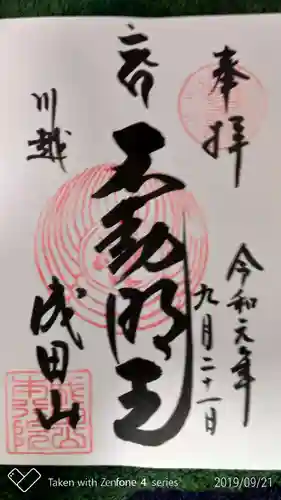 奉拝
令和元年
九月二十一日
不動明王
川越
成田山
Taken with Zenfone 4 series
2019/09/21